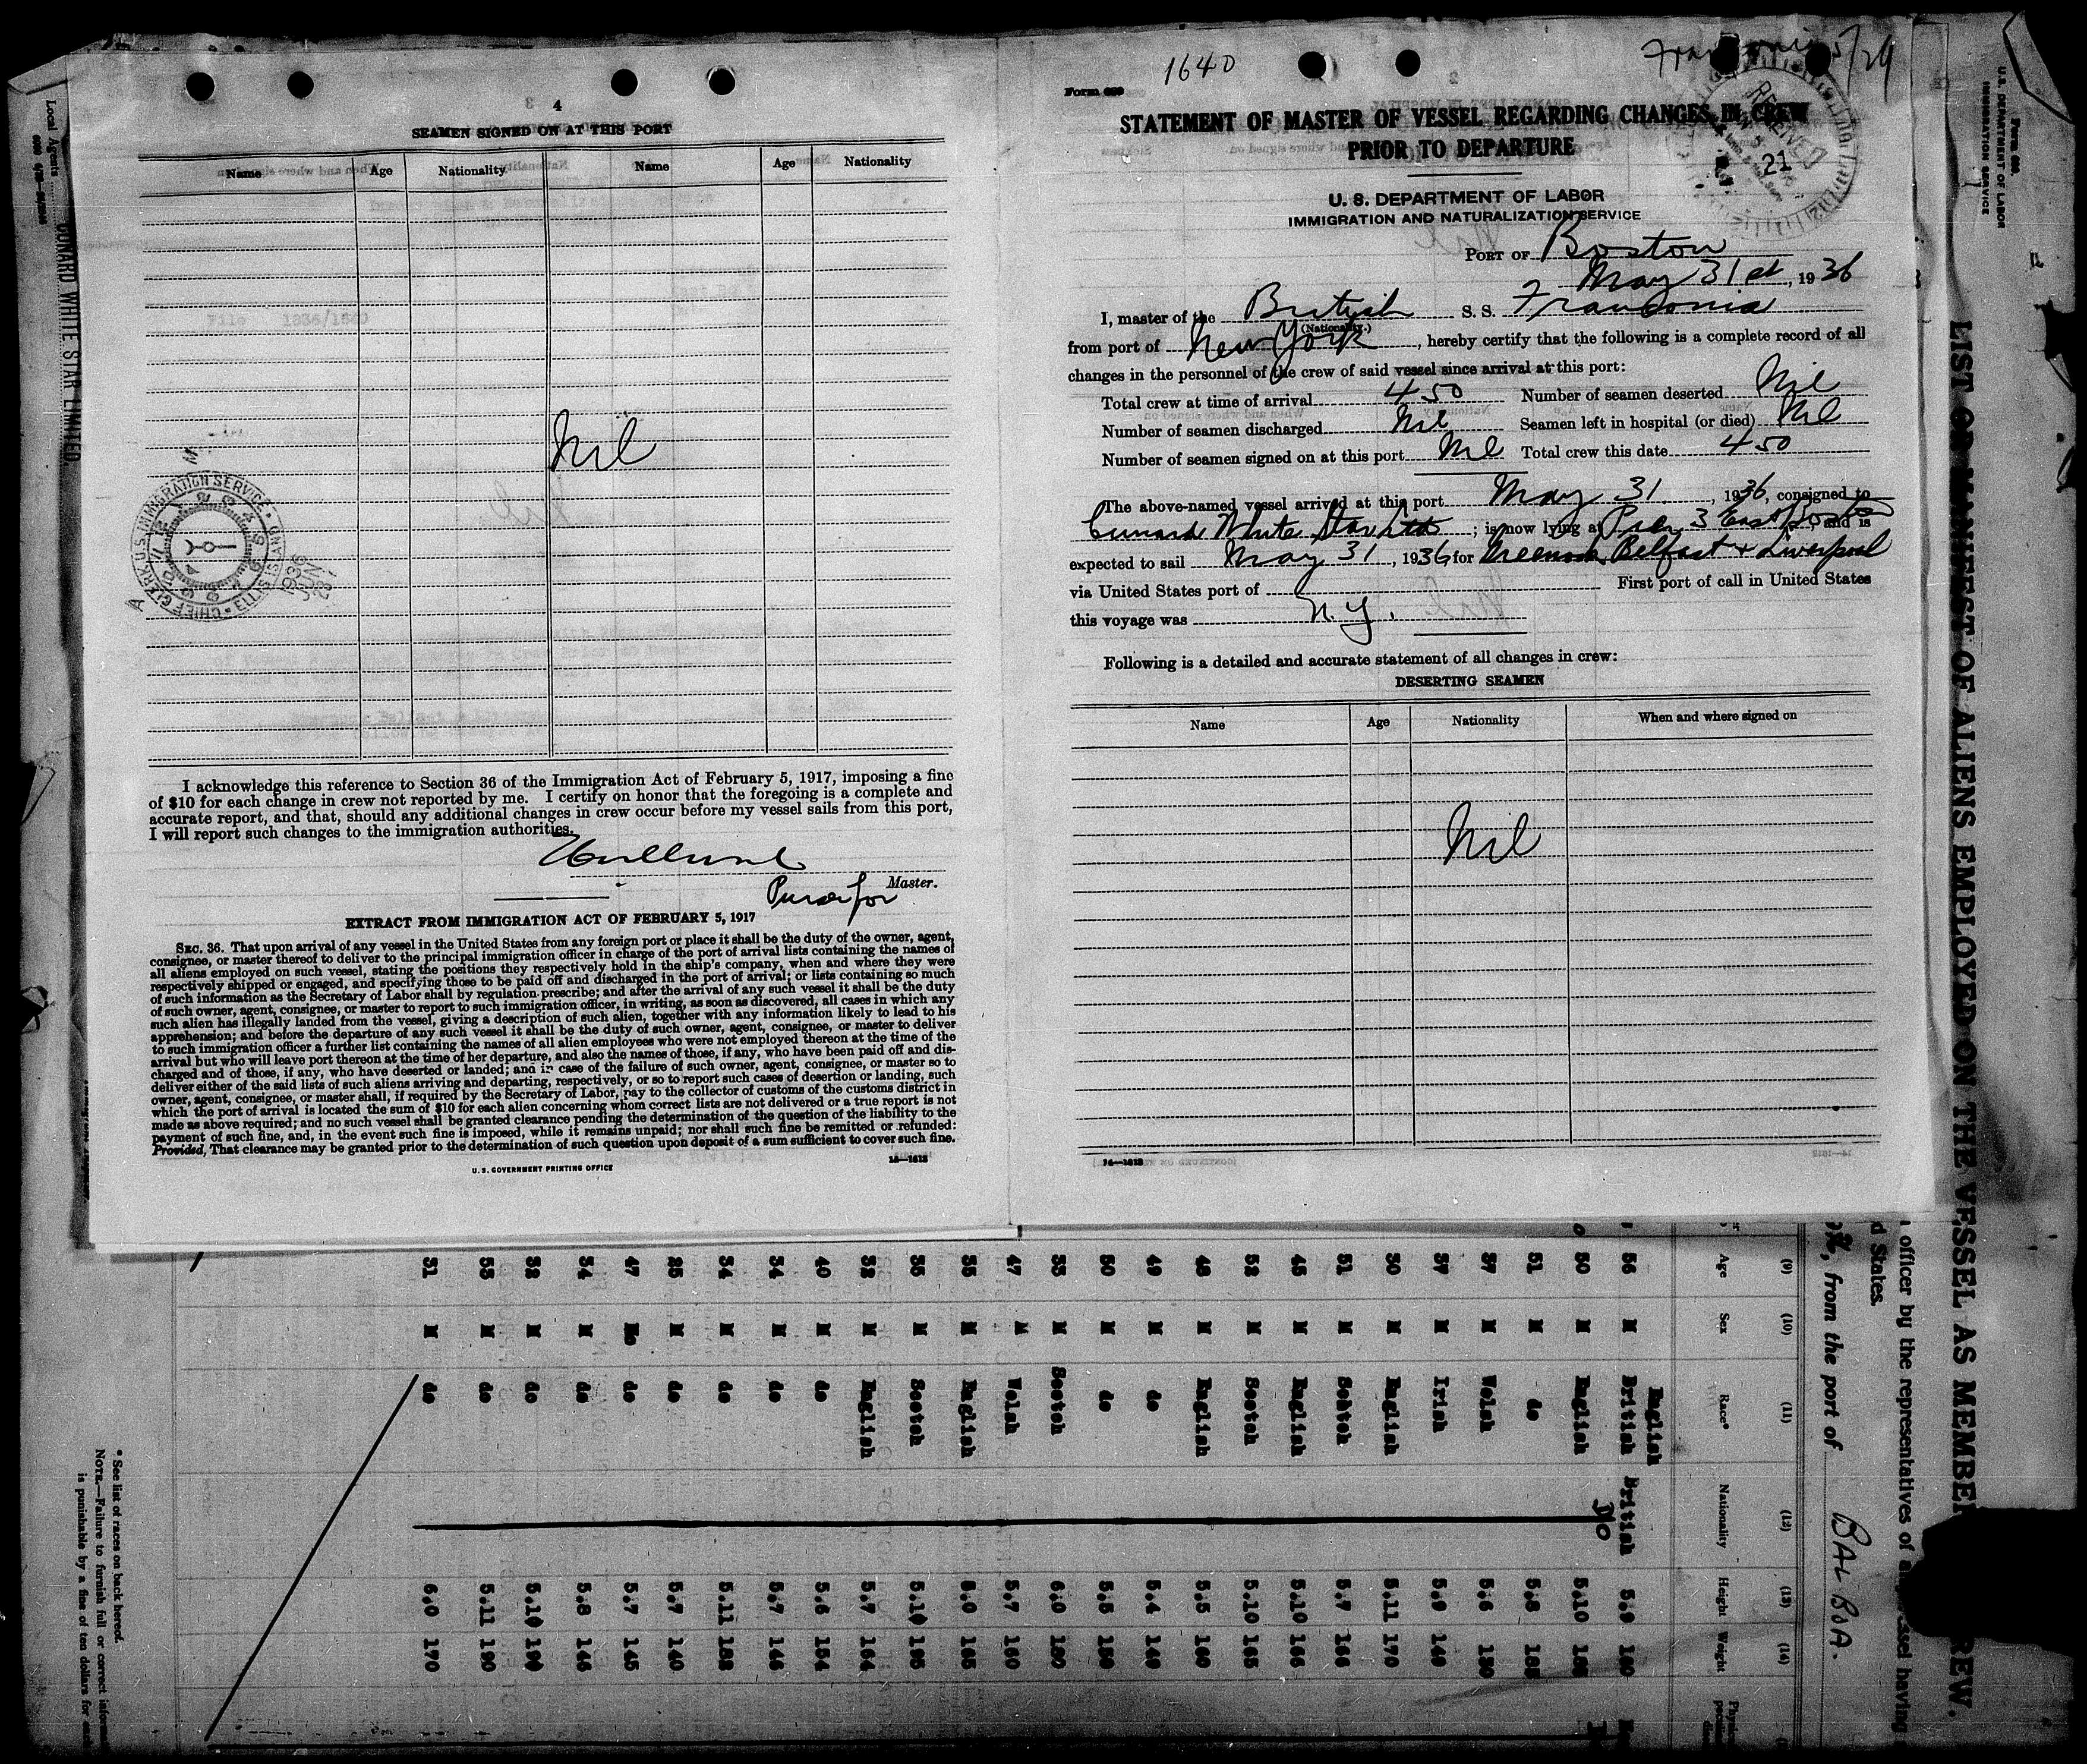 4
SEAMEN SIGNED ON AT THIS PORT
Name Age Nationality Name Age Nationality
Nil
CHIEF CLERK U.S. IMMIGRATION SERVICE · ELLIS ISLAND
1936
JUN
23
I acknowledge this reference to Section 36 of the Immigration Act of February 5, 1917, imposing a fine
of $10 for each change in crew not reported by me. I certify on honor that the foregoing is a complete and
accurate report, and that, should any additional changes in crew occur before my vessel sails from this port,
I will report such changes to the immigration authorities.
Purser for Master.
EXTRACT FROM IMMIGRATION ACT OF FEBRUARY 5, 1917
SEC. 36. That upon arrival of any vessel in the United States from any foreign port or place it shall be the duty of the owner, agent,
consignee, or master thereof to deliver to the principal immigration officer in charge of the port of arrival lists containing the names of
all aliens employed on such vessel, stating the positions they respectively hold in the ship's company, when and where they were
respectively shipped or engaged, and specifying those to be paid off and discharged in the port of arrival; or lists containing so much
of such information as the Secretary of Labor shall by regulation prescribe; and after the arrival of any such vessel it shall be the duty
of such owner, agent, consignee, or master to report to such immigration officer, in writing, as soon as discovered, all cases in which any
such alien has illegally landed from the vessel, giving a description of such alien, together with any information likely to lead to his
apprehension; and before the departure of any such vessel it shall be the duty of such owner, agent, consignee, or master to deliver
to such immigration officer a further list containing the names of all alien employees who were not employed thereon at the time of the
arrival but who will leave port thereon at the time of her departure, and also the names of those, if any, who have been paid off and dis-
charged and of those, if any, who have deserted or landed; and in case of the failure of such owner, agent, consignee, or master so to
deliver either of the said lists of such aliens arriving and departing, respectively, or so to report such cases of desertion or landing, such
owner, agent, consignee, or master shall, if required by the Secretary of Labor, pay to the collector of customs of the customs district in
which the port of arrival is located the sum of $10 for each alien concerning whom correct lists are not delivered or a true report is not
made as above required; and no such vessel shall be granted clearance pending the determination of the question of the liability to the
payment of such fine, and, in the event such fine is imposed, while it remains unpaid; nor shall such fine be remitted or refunded:
Provided, That clearance may be granted prior to the determination of such question upon deposit of a sum sufficient to cover such fine.
U. S. GOVERNMENT PRINTING OFFICE 14—1613
1640
Franconia 5/29
Form 689
STATEMENT OF MASTER OF VESSEL REGARDING CHANGES IN CREW
PRIOR TO DEPARTURE
RECEIVED
21
U. S. DEPARTMENT OF LABOR
IMMIGRATION AND NATURALIZATION SERVICE
PORT OF Boston
May 31st, 1936
I, master of the British S. S. Franconia
(Nationality.)
from port of New York, hereby certify that the following is a complete record of all
changes in the personnel of the crew of said vessel since arrival at this port:
Total crew at time of arrival 450 Number of seamen deserted Nil
Number of seamen discharged Nil Seamen left in hospital (or died) Nil
Number of seamen signed on at this port Nil Total crew this date 450
The above-named vessel arrived at this port May 31, 1936, consigned to
Cunard White Star Ltd; is now lying at Pier 3 East Boston, and is
expected to sail May 31, 1936, for Greenock Belfast + Liverpool
via United States port of First port of call in United States
this voyage was N.Y.
Following is a detailed and accurate statement of all changes in crew:
DESERTING SEAMEN
Name Age Nationality When and where signed on
Nil
14—1613
Local Agents
CUNARD WHITE STAR LIMITED.
Form 689
U. S. DEPARTMENT OF LABOR
IMMIGRATION SERVICE
LIST OR MANIFEST OF ALIENS EMPLOYED ON THE VESSEL AS MEMBE REW.
officer by the representatives of a ssel having
d States.
, from the port of BALBOA.
(9) (10) (11) (12) (13) (14)
Age Sex Race* Nationality Height Weight
English
56 M British British 5.9 180
50 M English Do 5.10
51 M do 5.8
37 M Welsh 5.6
57 M Irish 5.9 140
30 M English 5.11 170
51 M Scotch 5.7 166
45 M English 5.10 166
52 M Scotch 5.10 165
48 M English 5.5 160
49 M do 5.4 140
50 M do 5.5
55 M Scotch 6.0
47 M Welsh 5.7 160
55 M English 165
35 M Scotch 5.10 195
52 M English 5.7 164
40 M do 5.6 154
34 M do 5.7 146
34 M do 5.11 158
25 M do 5.7 140
47 do 5.7 145
34 M do 5.8 146
32 M do 5.10
53 M do 5.11 190
31 M do 6.0 170
* See list of races on back hereof.
NOTE.—Failure to furnish full or correct informa
is punishable by a fine of ten dollars for each